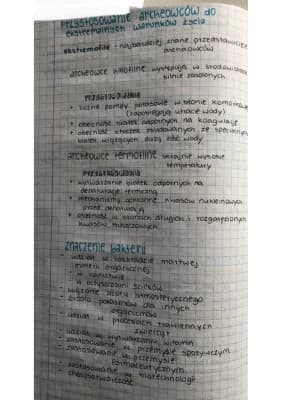 Przystosowanie archeowców do
ekstremalnych warunków życia
ekstremofile - najbardziej znane przedstawiciele
archeowców
archeowce halofilne występują w środowiskach
silnie zasolonych
Przystosowania
• liczne pompy potasowe w błonie komórkowej
(zapobiegają utracie wody)
• obecność białek odpornych na koagulację
• obecność otoczek zbudowanych ze specjalnych
białek wiążących dużą ilość wody
archeowce termofilne skrajnie wysokie
temperatury
Przystosowania
• wytwarzanie białek odpornych na
denaturację termiczną
• mechanizmy ochronne kwasów nukleinowych
przed denaturacją
• obecność w błonach długich i rozgałęzionych
kwasów tłuszczowych
Znaczenie bakterii
- udział w rozkładzie martwej
materii organicznej
- w
- w oczyszczaniu ścieków
- wiązanie azotu atmosferycznego
- źródło pokarmów dla innych
organizmów
- udział w procesach trawiennych
zwierząt
- udział w wytwarzaniu witamin
- zastosowanie w przemyśle spożywczym
- zastosowanie w przemyśle
farmaceutycznym
- zastosowanie w biotechnologii
- chorobotwórczość